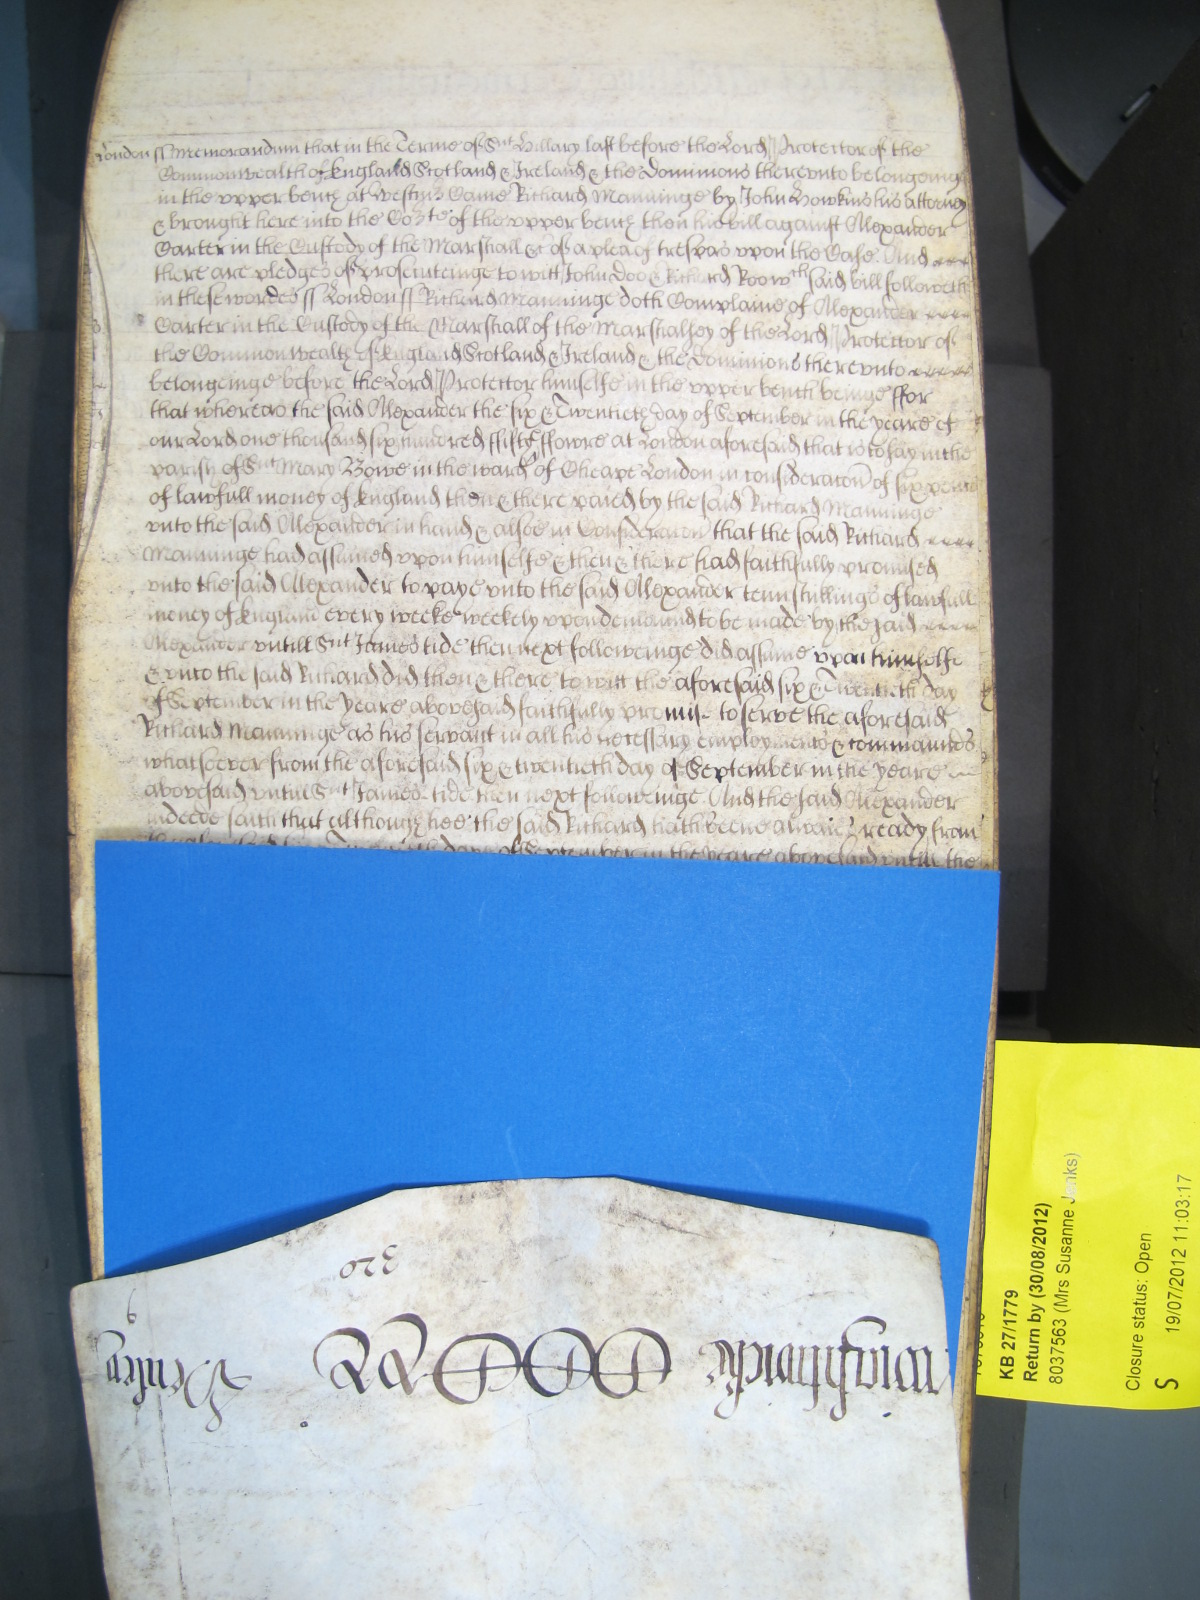 London ss Memorandum that in the Terme of Snt Hillary last before the Lord Protector of the
Commonwealth of England Scotland & Ireland & the Dominions thereunto belongeing
in the upper bench at Westmr Came Richard Manninge by John Howkins his attorney
& brought here into the Corte of the upper bench then his bill against Alexander
Carter in the Custody of the Marshall &c of a plea of trespas upon the Case And
there are pledges of prosecuteinge to witt John Doo & Richard Roo wch said bill followeth
in these wordes ss London ss Richard Manninge doth Complaine of Alexander
Carter in the Custody of the Marshall of the Marshalsey of the Lord Protector of
the Commonwealth of England Scotland & Ireland & the Dominions thereunto
belongeinge before the Lord Protector himselfe in the upper bench beinge ffor
that whereas the said Alexander the six & Twentieth day of September in the yeare of
our Lord one thousand six hundred ffifty ffowre at London aforesaid that is to say in the
parish of Snt Mary Bowe in the ward of Cheape London in consideracon of six pence
of lawfull money of England then & there paied by the said Richard Manninge
unto the said Alexander in hand & alsoe in Consideracon that the said Richard
Manninge had assumed upon himselfe & then & there had faithfully promised
unto the said Alexander to paye unto the said Alexander tenn shillings of lawfull
money of England every weeke weekely upon demaund to be made by the said
Alexander untill Snt James tide then next followeinge did assume upon himselfe
& unto the said Richard did then & there to witt the aforesaid six & Twentieth day
of September in the yeare abovesaid faithfully promise to serve the aforesaid
Richard Manninge as his servant in all his necessary employments & commaunds
whatsoever from the aforesaid six & twentieth day of September in the yeare
abovesaid untill Snt James tide then next followeinge And the said Alexander
indeede saith that although hee the said Richard hath beene alwaies ready from
day of September in the yeare abovesaid untill the
320
Wightwicke
Henley
KB 27/1779
Return by (30/08/2012)
8037563 (Mrs Susanne Jenks)
Closure status: Open
S 19/07/2012 11:03:17